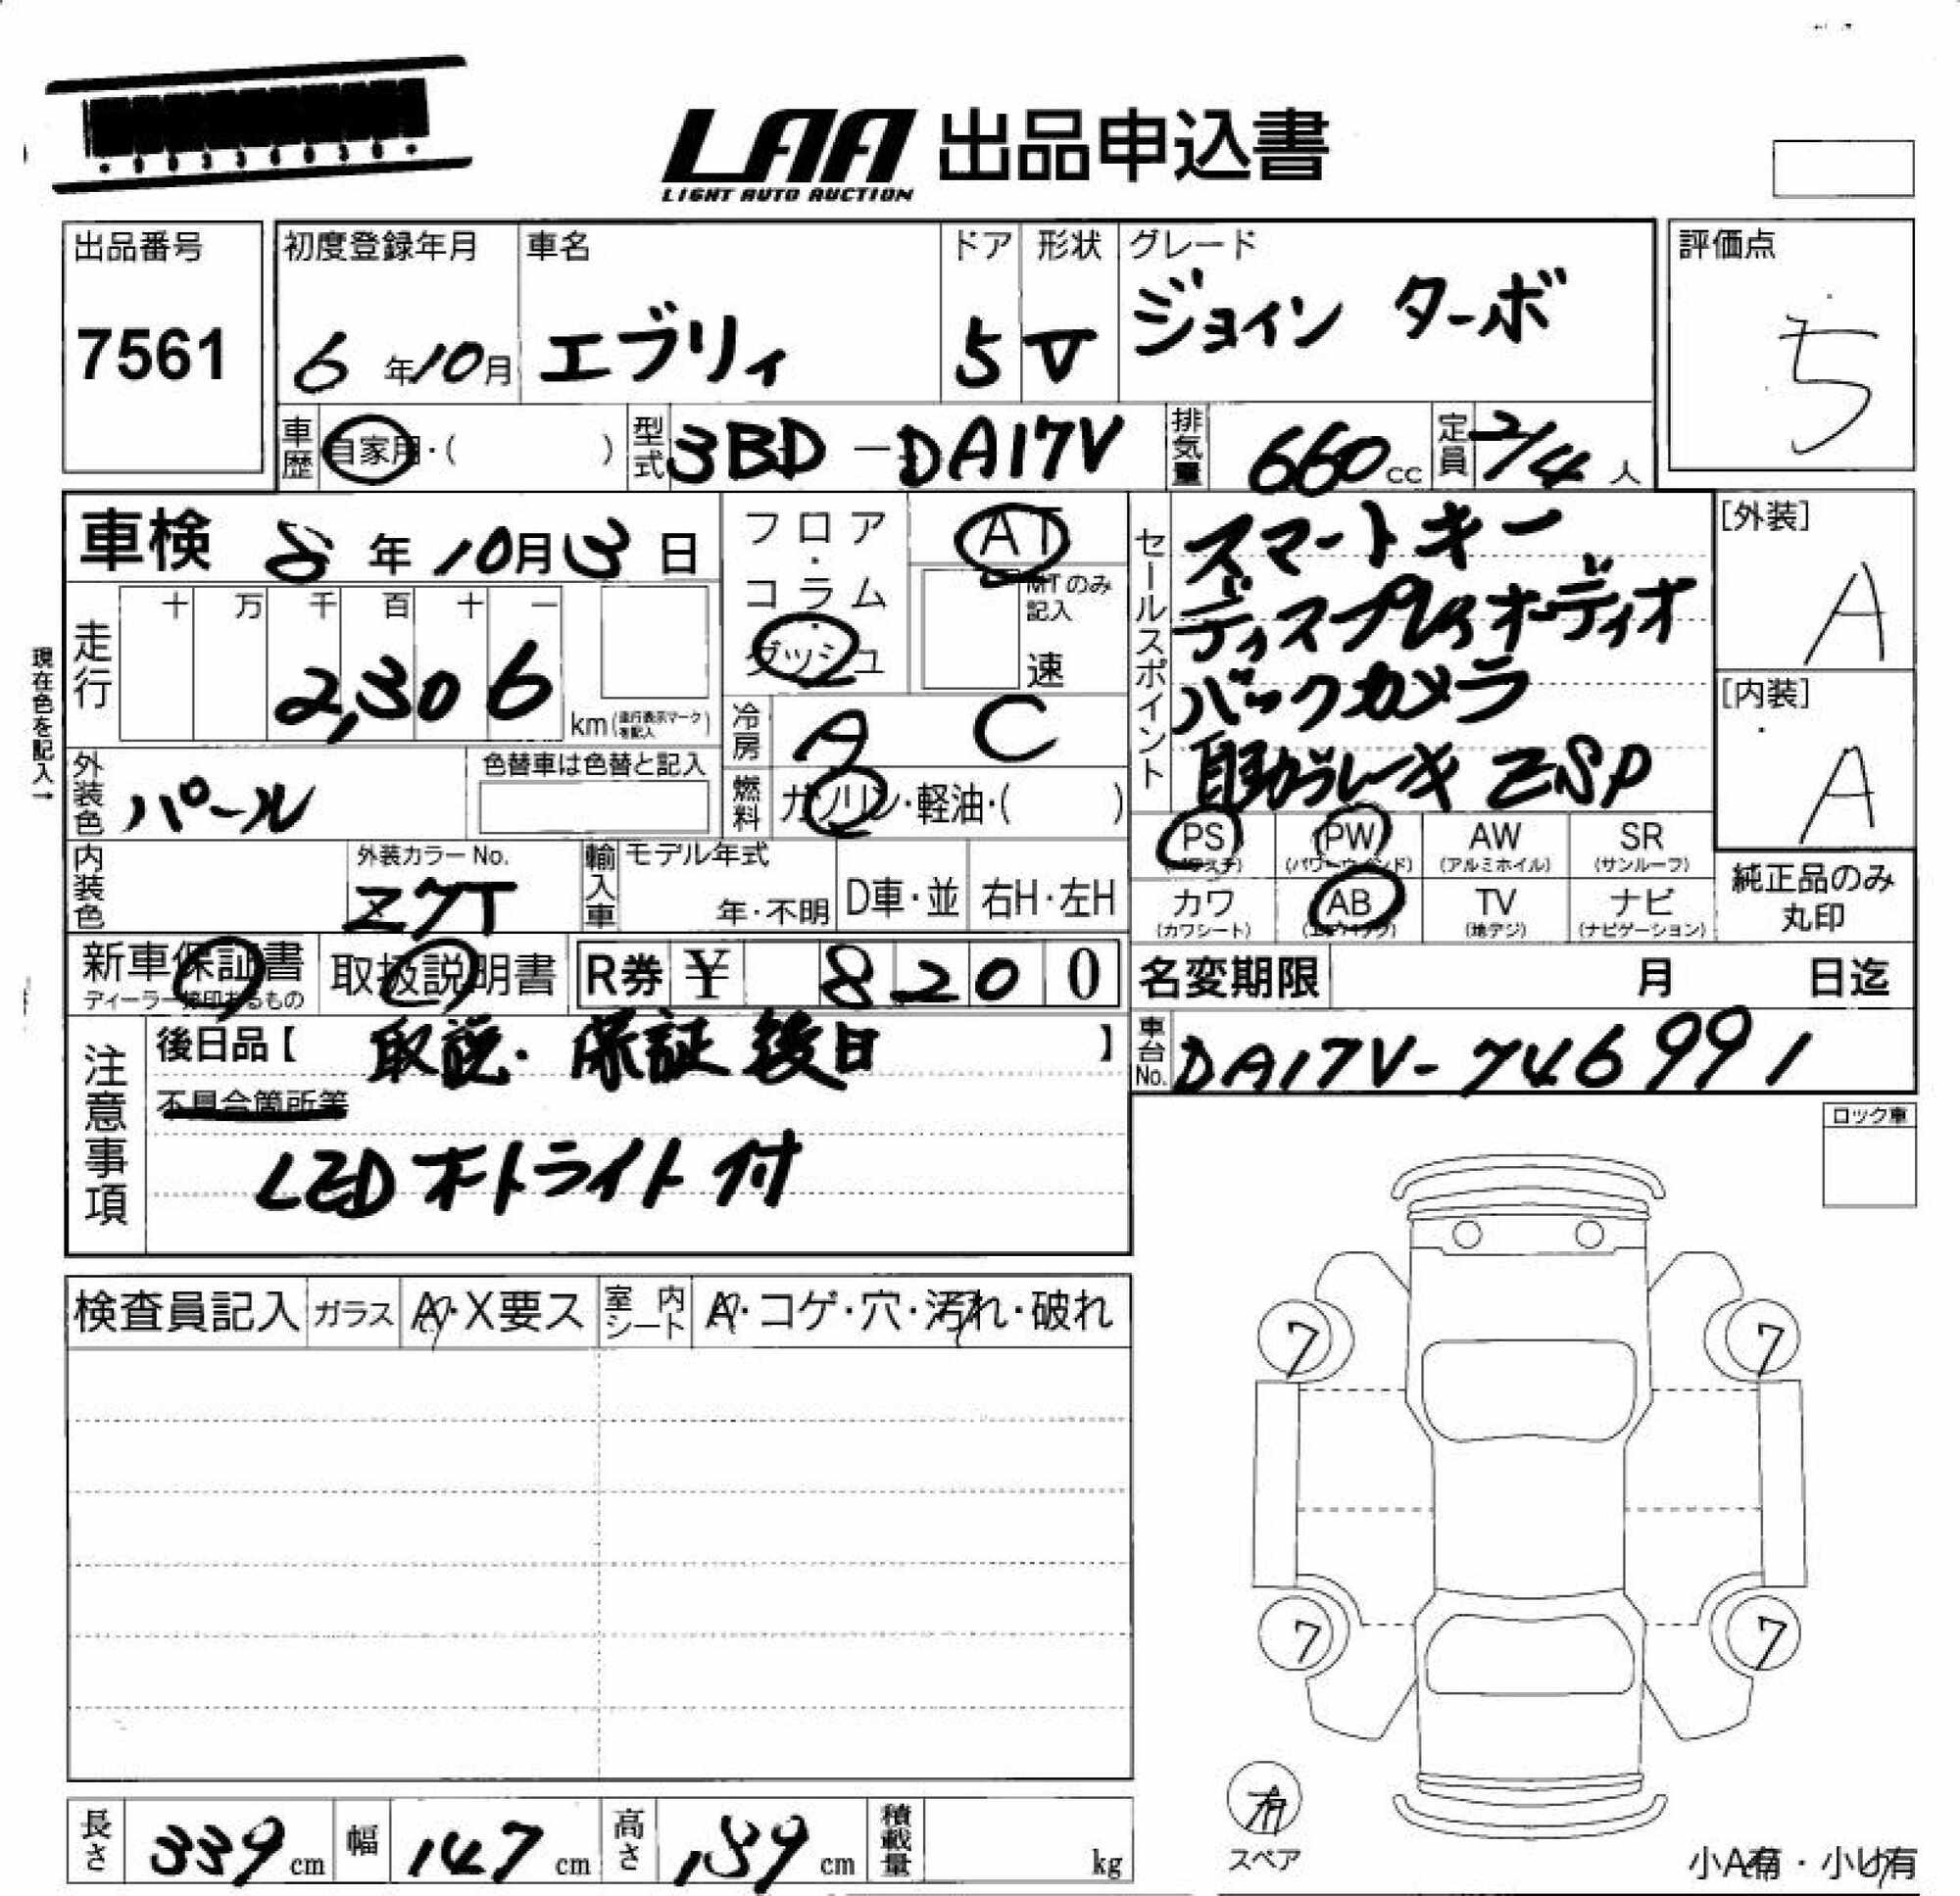 LAA 出品申込書
LIGHT AUTO AUCTION
出品番号
7561
初度登録年月
6年10月
車名
エブリィ
ドア
5
形状
V
グレード
ジョイン ターボ
評価点
5
車歴
自家用・( )
型式
3BD-DA17V
排気量
660cc
定員
2/4人
車検 8年10月13日
フロア・コラム・ダッシュ
AT
MTのみ記入
速
セールスポイント
スマートキー
ディスプレイオーディオ
バックカメラ
自動ブレーキ ESP
[外装]
A
[内装]
A
現在色を記入→
走行
十 万 千 百 十 一
2,306 km(走行表示マークを記入)
冷房
AC
外装色
パール
色替車は色替と記入
燃料
ガソリン・軽油・( )
PS
(パワステ)
PW
(パワーウインド)
AW
(アルミホイル)
SR
(サンルーフ)
内装色
外装カラーNo.
Z7T
輸入車
モデル年式
年・不明
D車・並
右H・左H
カワ
(カワシート)
AB
(エアバック)
TV
(地デジ)
ナビ
(ナビゲーション)
純正品のみ
丸印
新車保証書
ディーラー捺印あるもの
取扱説明書
R券 ¥ 8200
名変期限 月 日迄
注意事項
後日品【 取説・保証 後日 】
不具合箇所等
LEDオートライト付
車台No.
DA17V-746991
ロック車
検査員記入
ガラス
A・X要ス
室内シート
A・コゲ・穴・汚れ・破れ
7
7
7
7
有
スペア
小A有・小U有
長さ 339cm
幅 147cm
高さ 189cm
積載量 kg